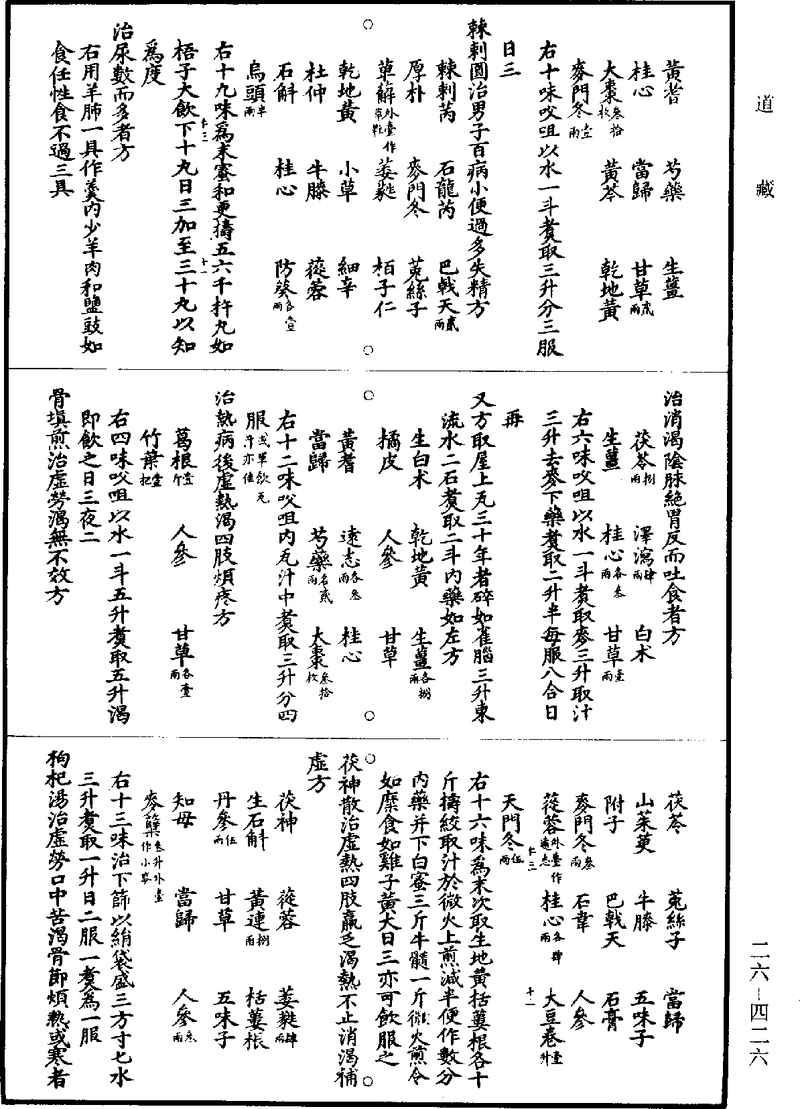 道藏
黃耆　芍藥　生薑
桂心　當歸　甘草貳兩
大棗叁拾枚　黃芩　乾地黃
麥門冬壹兩
右十味㕮咀以水一斗煑取三升分三服
日三
棘刺圓治男子百病小便過多失精方
棘刺芮　石龍芮　巴戟天貳兩
厚朴　麥門冬　菟絲子
萆薢外臺作草鞋　萎蕤　栢子仁
乾地黃　小草　細辛
杜仲　牛膝　蓯蓉
石斛　桂心　防葵各壹兩
烏頭半兩
右十九味爲末蜜和更擣五六千杵丸如
梧子大飲下十丸日三加至三十丸以知
爲度
治尿數而多者方
右用羊肺一具作羹内少羊肉和鹽豉如
食任性食不過三具
治消渴陰脉絕胃反而吐食者方
茯苓捌兩　澤瀉肆兩　白术
生薑　桂心各叁兩　甘草壹兩
右六味㕮咀以水一斗煑取麥三升取汁
三升去麥下藥煑取二升半每服八合日
再
又方取屋上瓦三十年者碎如雀腦三升東
流水二石煑取二斗内藥如左方
生白术　乾地黃　生薑各捌兩
橘皮　人參　甘草
黃耆　遠志各叁兩　桂心
當歸　芍藥各貳兩　大棗叁拾枚
右十二味㕮咀内瓦汁中煑取三升分四
服或單飲瓦汁亦佳
治熱病後虛熱渴四肢煩疼方
葛根壹斤　人參　甘草各壹兩
竹葉壹把
右四味㕮咀以水一斗五升煑取五升渴
即飲之日三夜二
骨填煎治虛勞渴無不效方
茯苓　菟絲子　當歸
山茱萸　牛膝　五味子
附子　巴戟天　石膏
麥門冬叁兩　石韋　人參
蓯蓉外臺作遠志　桂心各肆兩　大豆卷壹升
天門冬伍兩
右十六味爲末次取生地黃栝蔞根各十
斤擣絞取汁於微火上煎減半便作數分
内藥并下白蜜三斤牛髓一斤微火煎令
如糜食如雞子黃大日三亦可飲服之
茯神散治虛熱四肢羸乏渴熱不止消渴補
虛方
茯神　蓯蓉　萎蕤肆兩
生石斛　黃連捌兩　栝蔞根
丹參伍兩　甘草　五味子
知母　當歸　人參叁兩
麥蘖叁升外臺作小麥
右十三味治下篩以絹袋盛三方寸七水
三升煑取一升日二服一煑爲一服
枸杞湯治虛勞口中苦渴骨節煩熱或寒者
二六—四二六